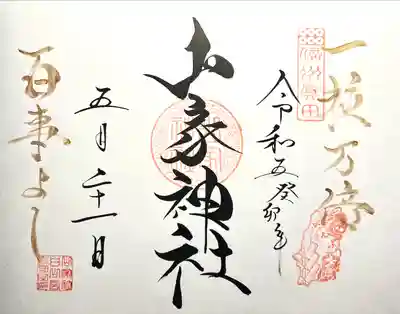 一粒万倍
信州眞田
令和五癸卯年
山家神社
五月二十一日
百事よし